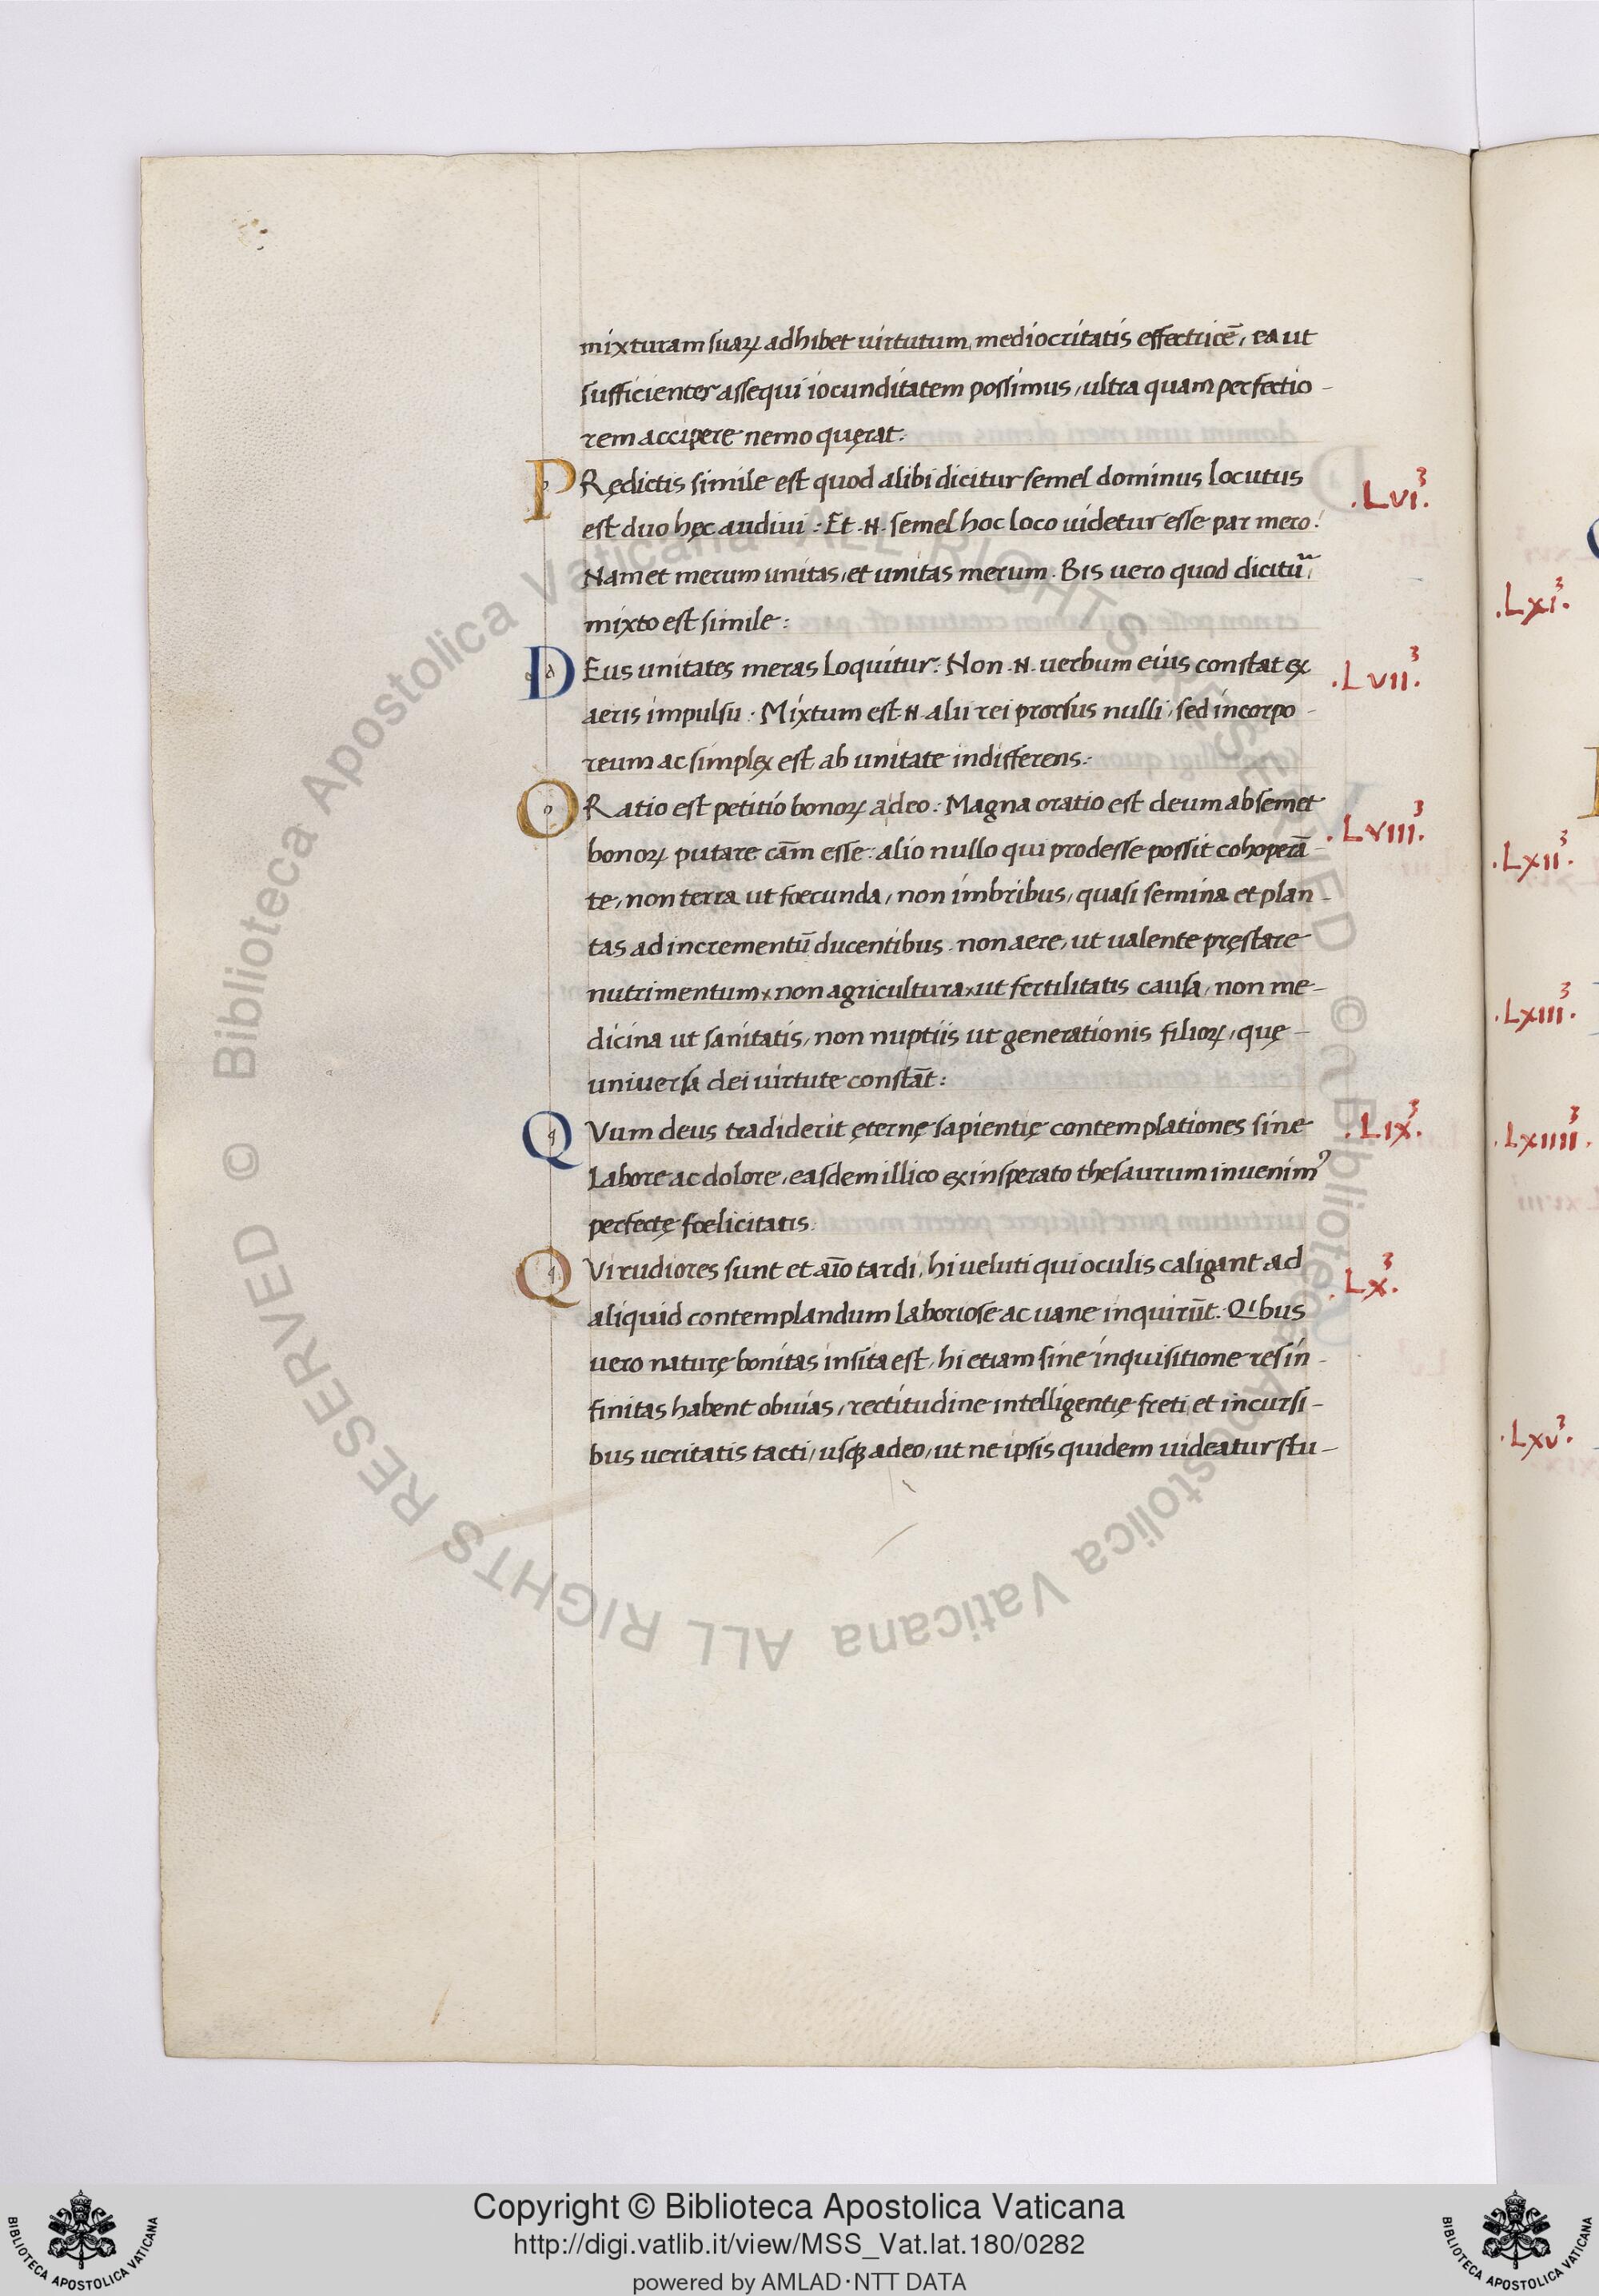 mixturam suaꝝ adhibet uirtutum, mediocritatis effectricē, ea ut
sufficienter assequi iocunditatem possimus, ultra quam perfectio-
rem accipere nemo quęrat:
PRędictis simile est quod alibi dicitur semel dominus locutus .LVI.³
est duo hęc audiui: Et .N. semel hoc loco uidetur esse par mero.
Nam et merum unitas, et unitas merum. Bis uero quod dicitur̃,
mixto est simile:
DEus unitates meras loquitur: Non .N. uerbum eius constat ex .LVII.³
aeris impulsu: Mixtum est .N. alii rei prorsus nulli, sed incorpo-
reum ac simplex est ab unitate indifferens:
ORatio est petitio bonoꝝ a deo: Magna oratio est deum ab semet .LVIII.³
bonoꝝ putare cām esse: alio nullo qui prodesse possit cohoperā-
te, non terra ut foecunda, non imbribus, quasi semina et plan-
tas ad incrementū ducentibus. non aere, ut ualente pręstare
nutrimentum, non agricultura, ut fertilitatis causa, non me-
dicina ut sanitatis, non nuptiis ut generationis filioꝝ, quę-
uniuersa dei uirtute constāt:
QVum deus tradiderit ęternę sapientię contemplationes sine .LIX.³
labore ac dolore, easdem illico ex insperato thesaurum inuenimꝰ
perfectę foelicitatis.
QVi rudiores sunt et aīo tardi, hi ueluti qui oculis caligant ad .LX.³
aliquid contemplandum laboriose ac uane inquirūt. Qibus
uero naturę bonitas insita est, hi etiam sine inquisitione res in-
finitas habent obuias, rectitudine intelligentię freti et incursi-
bus ueritatis tacti, usqꝫ adeo, ut ne ipsis quidem uideatur stu-
.LXI.³
.LXII.³
.LXIII.³
.LXIIII.³
.LXV.³
© Biblioteca Apostolica Vaticana ALL RIGHTS RESERVED © Biblioteca Apostolica Vaticana ALL RIGHTS RESERVED
Copyright © Biblioteca Apostolica Vaticana
http://digi.vatlib.it/view/MSS_Vat.lat.180/0282
powered by AMLAD·NTT DATA
BIBLIOTECA APOSTOLICA VATICANA
BIBLIOTECA APOSTOLICA VATICANA